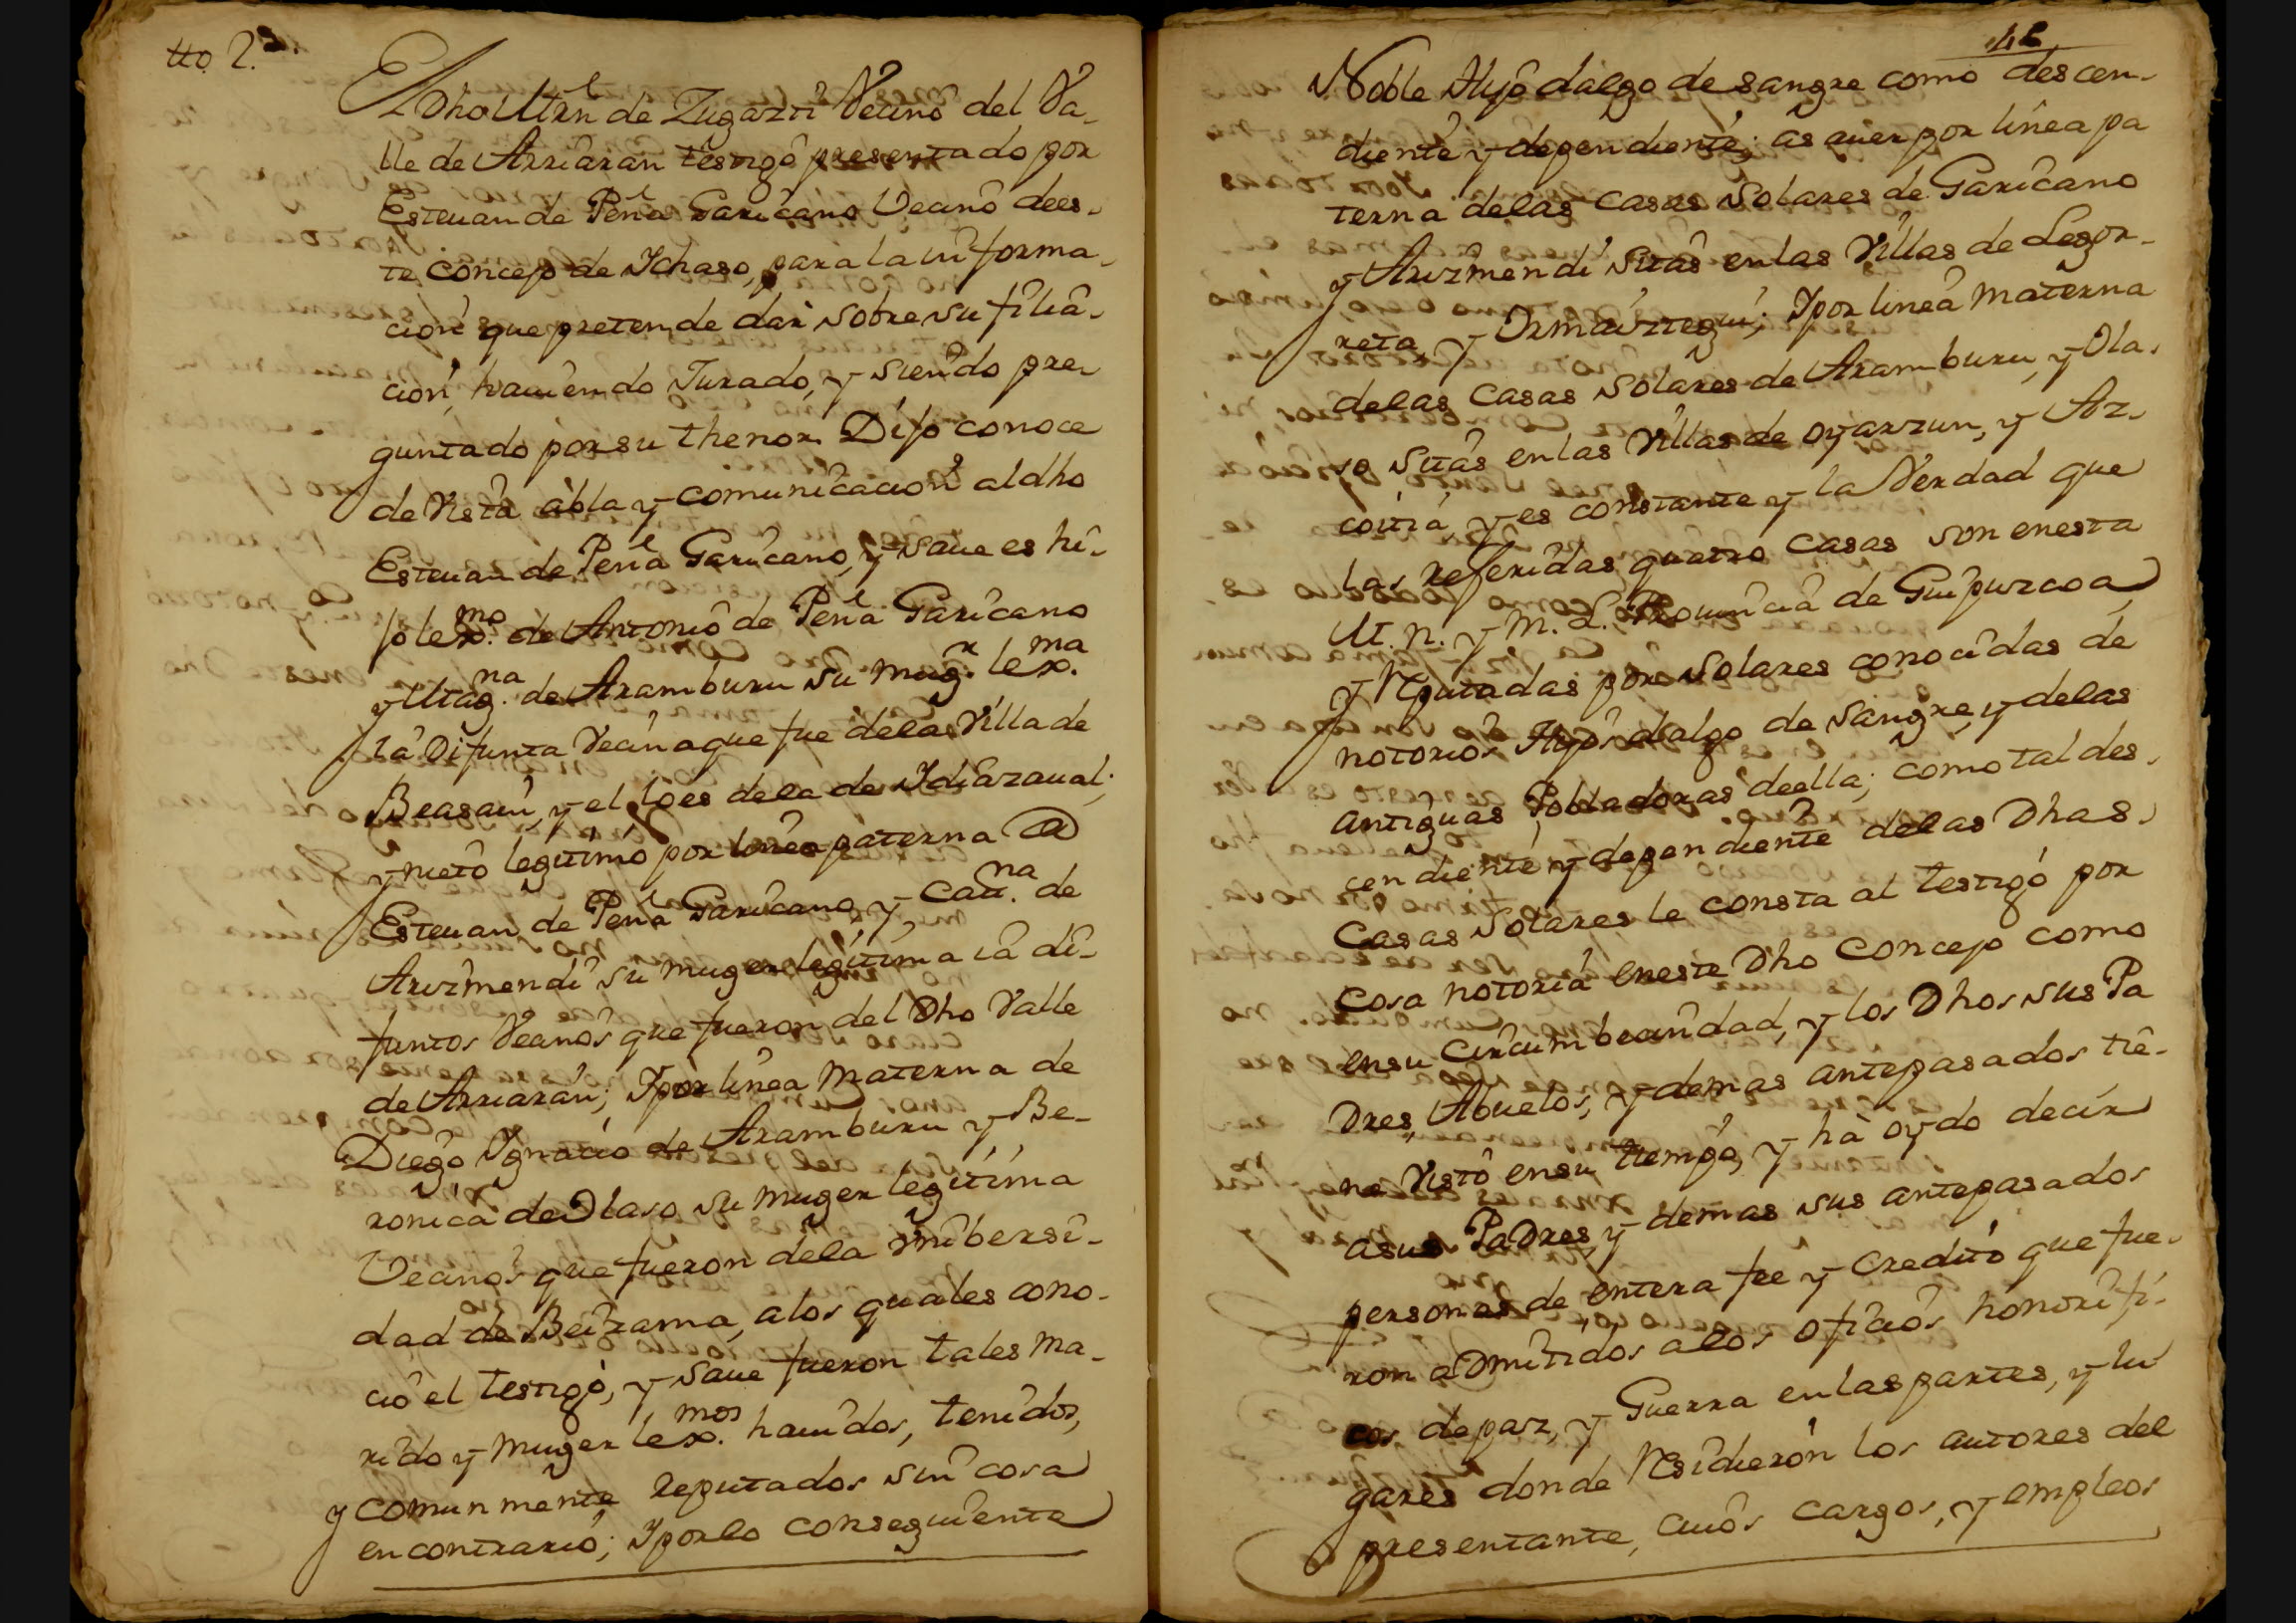 tto. 2.º
El Dho Mrn̄ de Zugazti Vecino del Va-
lle de Arriaran testigo presentado por
Esteuan de Peñª Garicano Vecino dees-
te Concejo de Ychaso, para la informa-
cion que pretende dar sobre su filia-
cion, hauiendo Jurado, y siendo pre-
guntado por su thenor. Dijo conoce
de Vista abla y comunicacion al dho
Esteuan de Peñª Garicano, y saue es hi-
jo lexmo. de Antonio de Peñª Garicano
y Magna. de Aramburu su mugr. lexma.
ia Difunta Vecina que fue dela Villa de
Beasain, y el lo es dela de Ydiazaual;
y nieto legitimo por linea paterna de
Esteuan de Peñª Garicano, y Catna. de
Arizmendi su muger legitima ia di-
funtos Vecinos que fueron del Dho Valle
de Arriaran; Y por linea materna de
Diego Ygnacio de Aramburu y Be-
ronica de Olaso su muger legitima
Vecinos que fueron dela Vnibersi-
dad de Beizama, alos quales cono-
cio el testigo, y saue fueron tales ma-
rido y muger lexmos. hauidos, tenidos,
y comunmente reputados sin cosa
en contrario; Y por lo consequiente
42
Noble Hijo dalgo de sangre como descen-
diente y dependiente; asauer por linea pa
terna delas casas Solares de Garicano
y Arizmendi sitas en las Villas de Legor-
reta y Ormaiztegui; Y por linea materna
delas casas Solares de Aramburu, y Ola-
so sitas en las Villas de oyarzun, y Az-
coitia, y es constante y la Verdad que
las referidas quatro casas son en esta
M. N. y M. L. Prouincia de Guipuzcoa
y Reputadas por Solares conocidas de
notorios Hijos dalgo de sangre, y delas
antiguas Pobladoras deella; como tal des-
cendiente y dependiente delas Dhas
Casas Solares le consta al testigo por
cosa notoria eneste Dho Concejo como
ensu circumbecindad, y los Dhos sus Pa
dres, Abuelos, y demas antepasados tie-
ne Visto ensu tiempo, y hà oydo decir
asus Padres y demas sus antepasados
personas de entera fee y credito que fue-
ron admitidos alos oficios honorifi-
cos de paz, y Guerra en las partes, y lu
gares donde Residieron los autores del
presentante, cuios cargos, y empleos